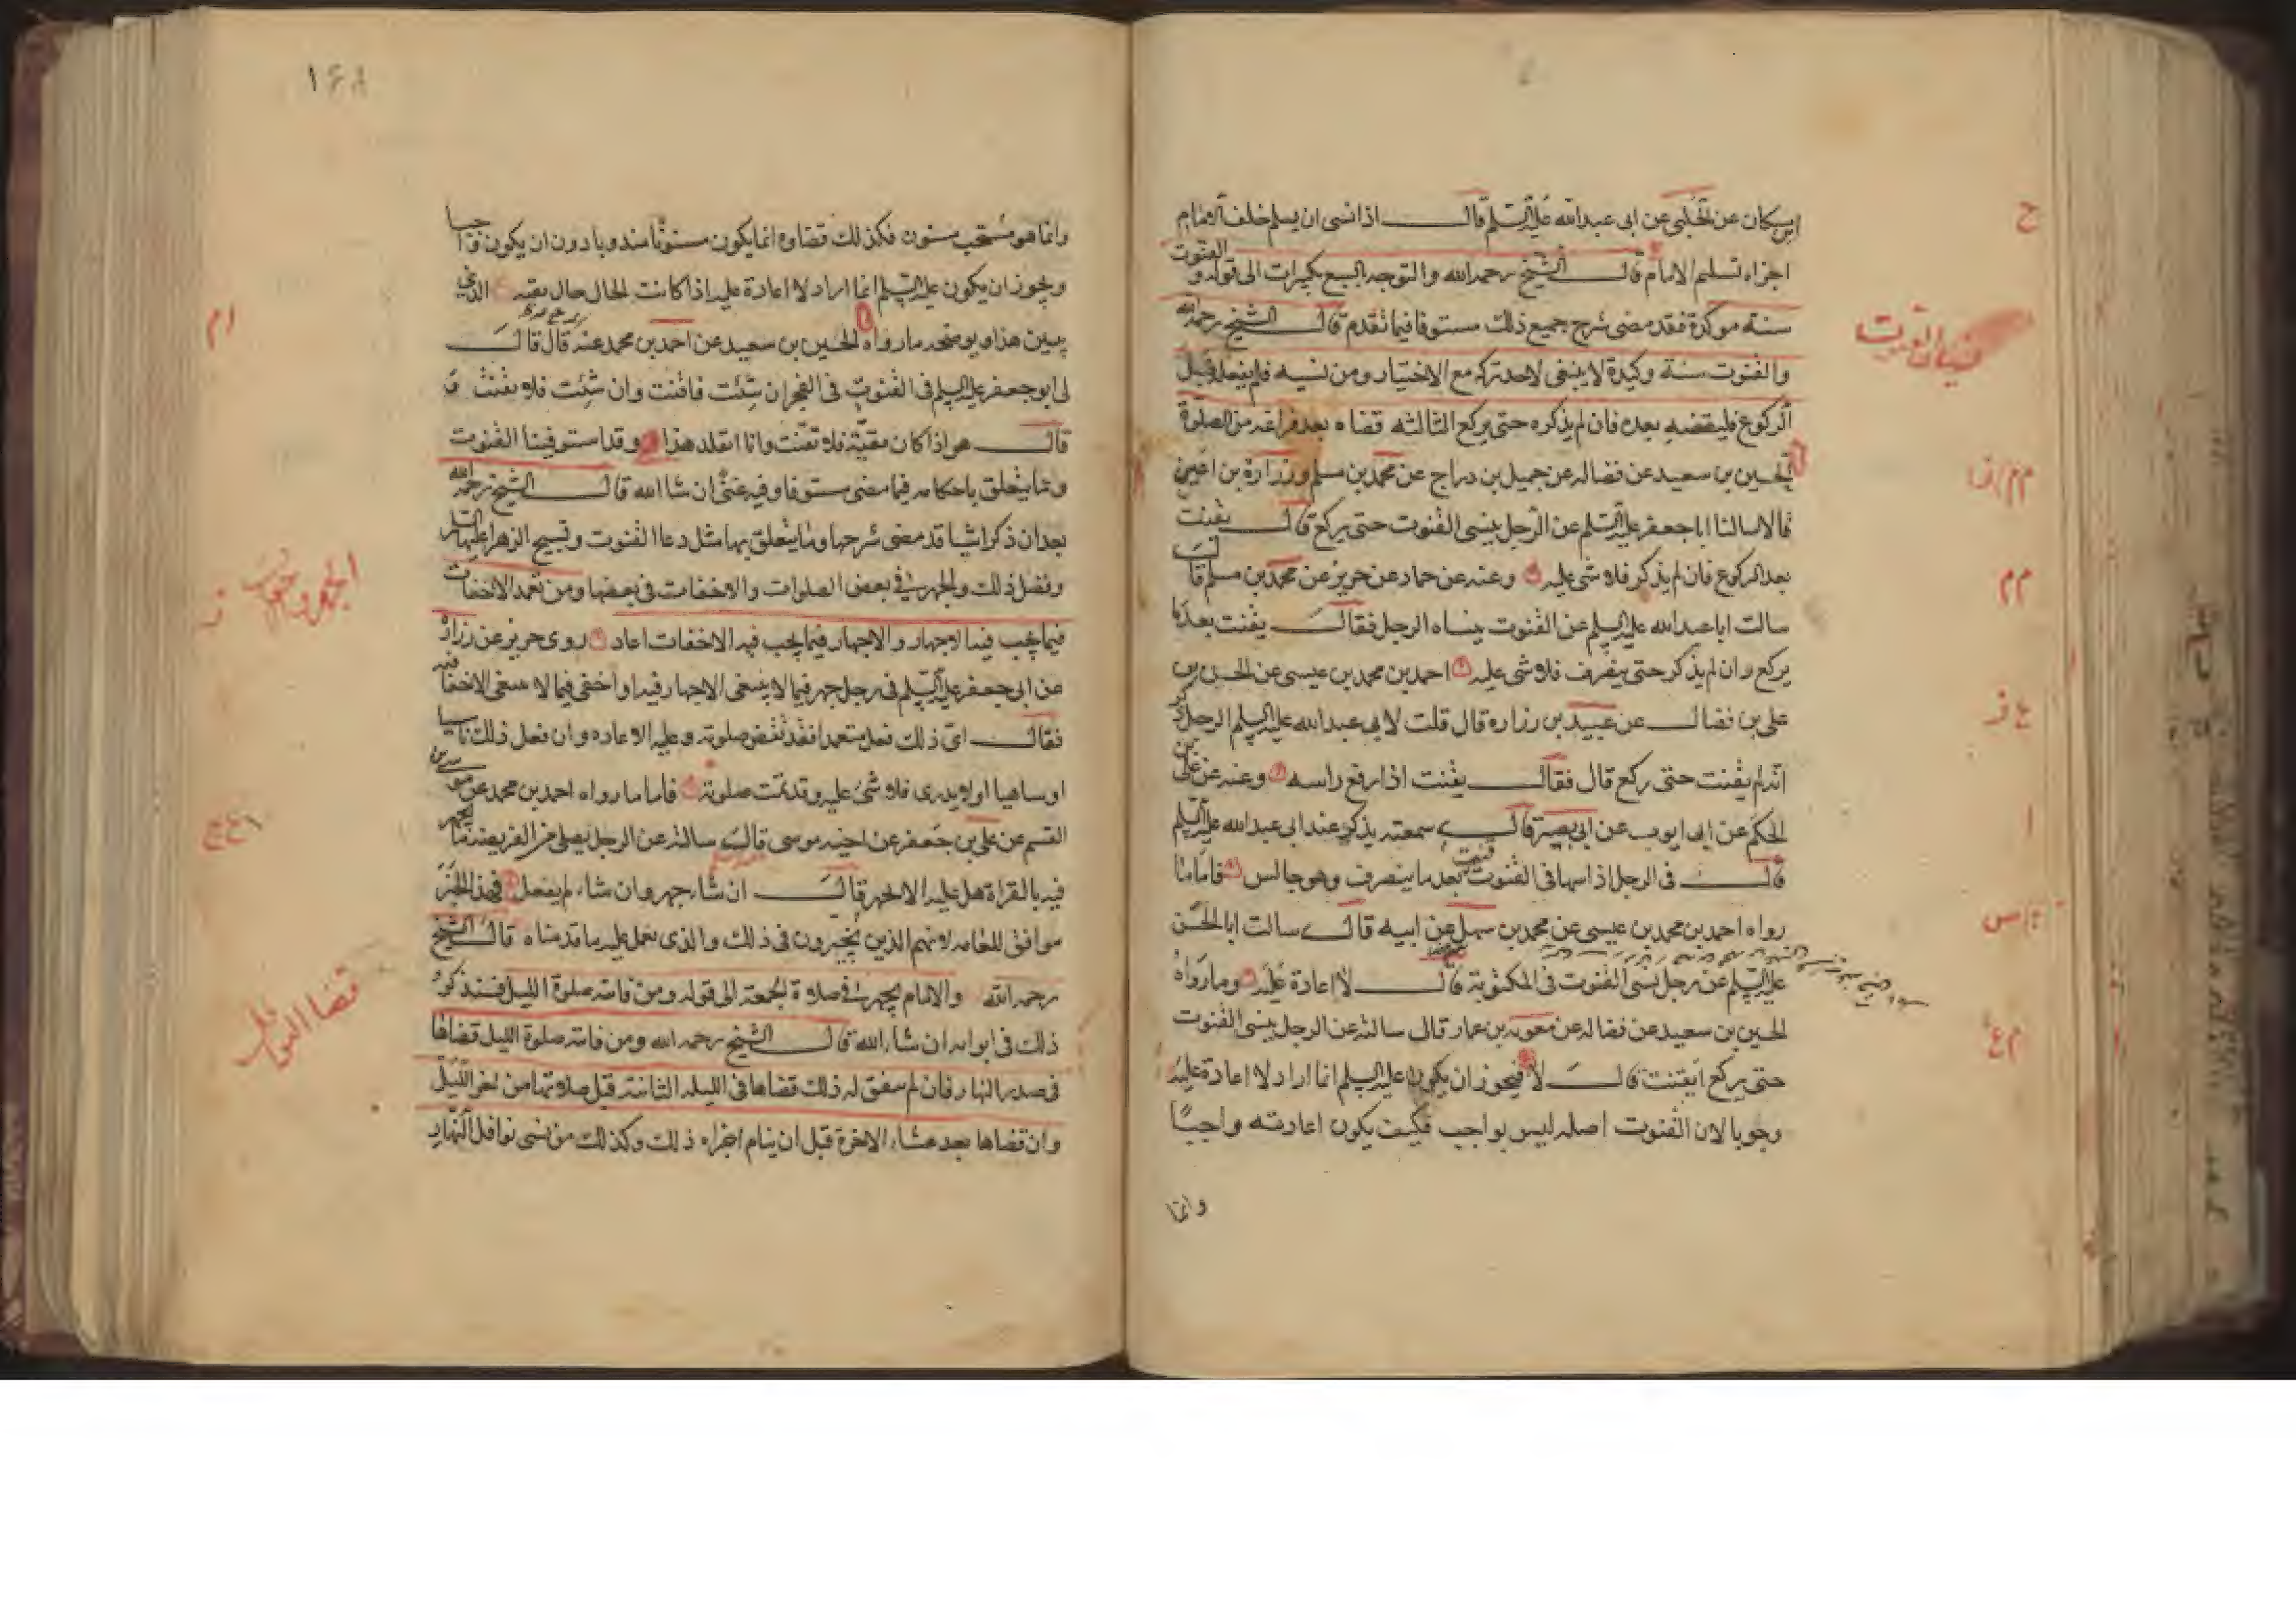 ابن مسكان عن الحلبى عن ابى عبد الله عليه السلم قال اذا نسى ان يسلم خلف الامام
اجزاه تسليم الامام قال الشيخ رحمه الله والتوجه بالسبع تكبيرات الى قوله والقنوت
سنة موكدة فقد مضى شرح جميع ذلك مستوفا فيما تقدم قال الشيخ رحمه الله
والقنوت سنة وكيدة لا ينبغى لاحد تركه مع الاختيار ومن نسيه فلم يفعله قبل
الركوع فليقضه بعده فان لم يذكره حتى يركع الثالثه قضاه بعد فراغه من الصلوة
الحسين بن سعيد عن فضاله عن جميل بن دراج عن محمد بن مسلم وزرارة بن اعين
قالا سالنا ابا جعفر عليه السلم عن الرجل ينسى القنوت حتى يركع قال يقنت
بعد الركوع فان لم يذكر فلا شى عليه وعنه عن حماد عن حريز عن محمد بن مسلم قال
سالت ابا عبد الله عليه السلم عن القنوت ينساه الرجل فقال يقنت بعد ما
يركع وان لم يذكر حتى ينصرف فلا شى عليه احمد بن محمد بن عيسى عن الحسن بن
على بن فضال عن عبيد بن زراره قال قلت لابى عبد الله عليه السلم الرجل ذكر
انه لم يقنت حتى ركع قال فقال يقنت اذا رفع راسه وعنه عن على بن
الحكم عن ابى ايوب عن ابى بصير قال سمعته يذكر عند ابى عبد الله عليه السلم
قال فى الرجل اذا سها فى القنوت قنت بعد ما ينصرف وهو جالس فاما ما
رواه احمد بن محمد بن عيسى عن محمد بن سهل عن ابيه قال سالت ابا الحسن
عليه السلم عن رجل نسى القنوت فى المكتوبة قال لا اعادة عليه وما رواه
الحسين بن سعيد عن فضاله عن معوية بن عمار قال سالته عن الرجل ينسى القنوت
حتى يركع ايقنت قال لا فيجوز ان يكون عليه السلم انما اراد لا اعادة عليه
وجوبا لان القنوت اصله ليس بواجب فكيف يكون اعادته واجبًا
وانما
ح
نسيان القنوت
م م
ا
١٤٨
وانما هو مستحب مسنون فكذلك قضاوه انما يكون مسنونا مندوبا دون ان يكون واجبا
ويجوز ان يكون عليه السلم انما اراد لا اعادة عليه اذا كانت الحال حال تقيه الذى
يبين هذا ويوضحه ما رواه الحسين بن سعيد عن احمد بن محمد عنه قال قال
لى ابو جعفر عليه السلم فى القنوت فى الفجر ان شئت فاقنت وان شئت فلا تقنت و
قال هو اذا كان تقية فلا تقنت وانا اتقلد هذا وقد استوفينا القنوت
وما يتعلق باحكامه فيما مضى مستوفا وفيه غنى ان شا الله قال الشيخ رحمه الله
بعد ان ذكر اشيا قد مضى شرحها وما يتعلق بها مثل دعا القنوت وتسبيح الزهرا عليها السلم
وفضل ذلك والجهر فى بعض الصلوات والاخفات فى بعضها ومن تعمد الاخفات
فيما يجب فيه الاجهار والاجهار فيما يجب فيه الاخفات اعاد روى حريز عن زرارة
عن ابى جعفر عليه السلم فى رجل جهر فيما لا ينبغى الاجهار فيه او اخفى فيما لا ينبغى الاخفا فيه
فقال اى ذلك فعل متعمدا فقد نقض صلوته وعليه الاعاده وان فعل ذلك ناسيا
او ساهيا او لا يدرى فلا شئ عليه وقد تمت صلوته فاما ما رواه احمد بن محمد عن موسى بن
القسم عن على بن جعفر عن اخيه موسى قال سالته عن الرجل يصلى من الفريضه ما يجهر
فيه بالقراة هل عليه الا يجهر قال ان شاء جهر وان شاء لم يفعل فهذا الخبر
موافق للعامه لانهم الذين يخيرون فى ذلك والذى نعمل عليه ما قدمناه قال الشيخ
رحمه الله والامام يجهر فى صلاة الجمعة الى قوله ومن فاته صلوة الليل فسنذكر
ذلك فى ابوابه ان شاء الله قال الشيخ رحمه الله ومن فاته صلوة الليل قضاها
فى صدر النهار فان لم يتفق له ذلك قضاها فى الليله الثانية قبل صلاتها من اخر الليل
وان قضاها بعد عشاء الاخرة قبل ان ينام اجزاه ذلك وكذلك من نسى نوافل النهار
ام
الجهر والاخفات
قضا النوافل